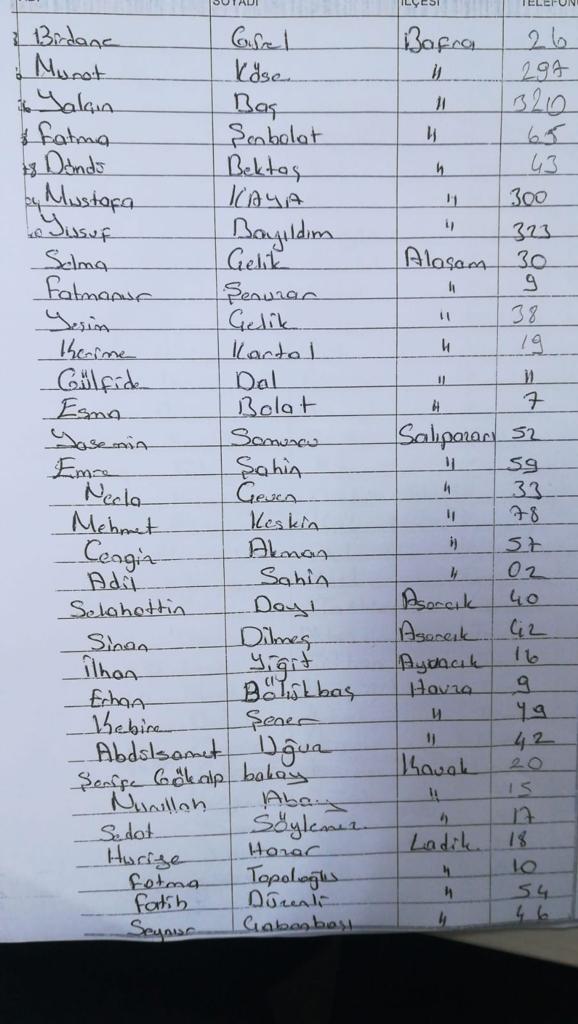 SOYADI İLÇESİ TELEFON
Birdane Gürel Bafra 26
Murat Köse " 297
Yalçın Baş " 320
Fatma Şenbolat " 65
Döndü Bektaş " 43
Mustafa KAYA " 300
Yusuf Bayıldım " 323
Selma Çelik Alaçam 30
Fatmanur Şenuzar " 9
Yeşim Çelik " 38
Kerime Kartal " 19
Gülfide Dal " "
Esma Bolat " 7
Yasemin Somuncu Salıpazarı 52
Emre Şahin " 59
Necla Geven " 33
Mehmet Keskin " 78
Cengiz Akman " 57
Adil Şahin " 02
Selahattin Dayı Asarcık 40
Sinan Dilmeç Asarcık 42
İlhan Yiğit Ayvacık 16
Erhan Bölükbaş Havza 9
Kebire Şener " 49
Abdülsamet Uğur " 42
Şerife Gökalp bakay Kavak 20
Nurullah Abay " 15
Sedat Söylemez " 17
Hurize Hazar Ladik 18
Fatma Topaloğlu " 10
Fatih Düzenli " 54
Seynur Çobanbaşı " 46